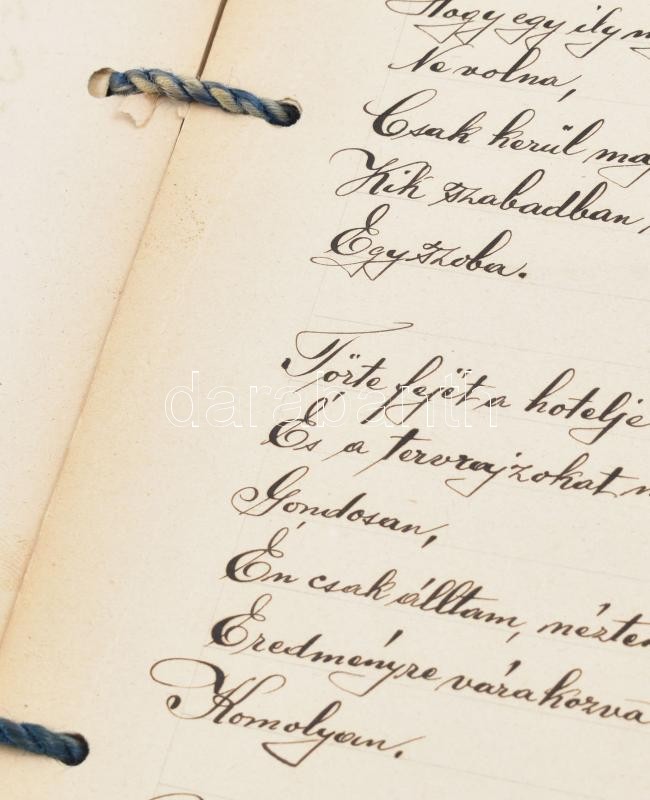 Hogy egy ily
Ne volna,
Csak kerül
Kik szabadban,
Egy szoba.
Törte fejét a hotelje
És a tervrajzokat
Gondosan,
Én csak álltam, nézte
Eredményre várakozva
Komolyan.
darabanth